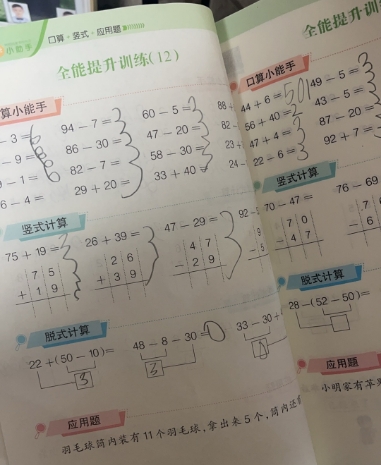 小能手
口算·竖式·应用题
全能提升训练(12)
算小能手
- 3 =
94 - 7 = 3
60 - 5 = 3
- 9 =
86 - 30 = 3
47 - 20 = 3
- 1 =
82 - 7 = 3
58 - 30 = 3
6 - 4 =
29 + 20 = 3
33 + 40 =
竖式计算
75 + 19 =
26 + 39 =
47 - 29 =
92 -
7 5
2 6
4 7
+ 1 9
+ 3 9
- 2 9
脱式计算
22 + (50 - 10) =
48 - 8 - 30 = 0
33 - 30 +
3
3
应用题
羽毛球筒内装有 11 个羽毛球,拿出来 5 个,筒内还
全能提升训
口算小能手
86 +
44 + 6 = 50
49 - 5 = 3
82 -
56 + 40 =
43 - 5 = 3
47 + 4 = 3
87 - 20 = 3
24 -
22 - 6 = 3
92 + 7 = 3
竖式计算
70 - 47 =
76 - 69
7 0
- 4 7
脱式计算
28 - (52 - 50) =
应用题
小明家有苹果